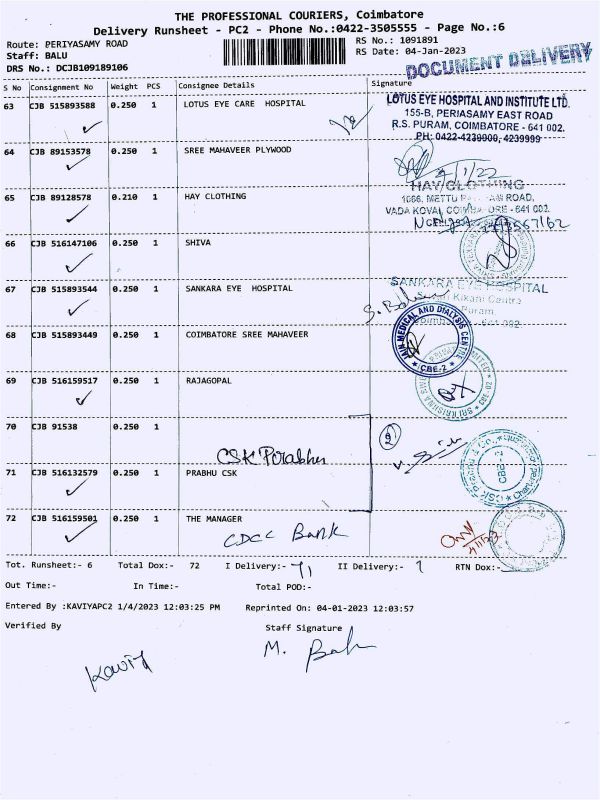 THE PROFESSIONAL COURIERS, Coimbatore
Delivery Runsheet - PC2 - Phone No.:0422-3505555 - Page No.:6
Route: PERIYASAMY ROAD
Staff: BALU
DRS No.: DCJB109189106
RS No.: 1091891
RS Date: 04-Jan-2023
DOCUMENT DELIVERY
S No Consignment No Weight PCS Consignee Details Signature
63 CJB 515893588 0.250 1 LOTUS EYE CARE HOSPITAL
LOTUS EYE HOSPITAL AND INSTITUTE LTD.
155-B, PERIASAMY EAST ROAD
R.S. PURAM, COIMBATORE - 641 002.
PH: 0422-4239900, 4239999
64 CJB 89153578 0.250 1 SREE MAHAVEER PLYWOOD
4/1/22
65 CJB 89128578 0.210 1 HAY CLOTHING
HAY CLOTHING
1086, METTU ROAD,
VADA KOVAI, COIMBATORE - 641 002.
66 CJB 516147106 0.250 1 SHIVA
67 CJB 515893544 0.250 1 SANKARA EYE HOSPITAL
SANKARA EYE HOSPITAL
Kikani Centre
Puram,
68 CJB 515893449 0.250 1 COIMBATORE SREE MAHAVEER
MEDICAL AND DIALYSIS CENTRE
CBE-2
69 CJB 516159517 0.250 1 RAJAGOPAL
SRI KRISHNA
CBE-02
70 CJB 91538 0.250 1
CSK Prabhu
2
71 CJB 516132579 0.250 1 PRABHU CSK
CSK Prabhu & Co.,
CBE-2
72 CJB 516159501 0.250 1 THE MANAGER
CDCC Bank
Tot. Runsheet:- 6 Total Dox:- 72 I Delivery:- 71 II Delivery:- 1 RTN Dox:-
Out Time:- In Time:- Total POD:-
Entered By :KAVIYAPC2 1/4/2023 12:03:25 PM Reprinted On: 04-01-2023 12:03:57
Verified By Staff Signature
Kaviy
M. Bah